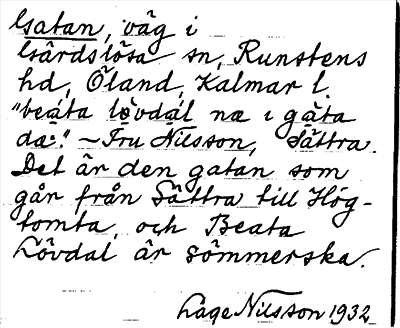 Gatan, väg i
Gärdslösa sn, Runstens
hd, Öland, Kalmar l.
"beata lövdal næ i gata
da:." – Fru Nilsson, Sättra.
Det är den gatan som
går från Sättra till Hög-
tomta, och Beata
Lövdal är sömmerska.
Låge Nilsson 1932